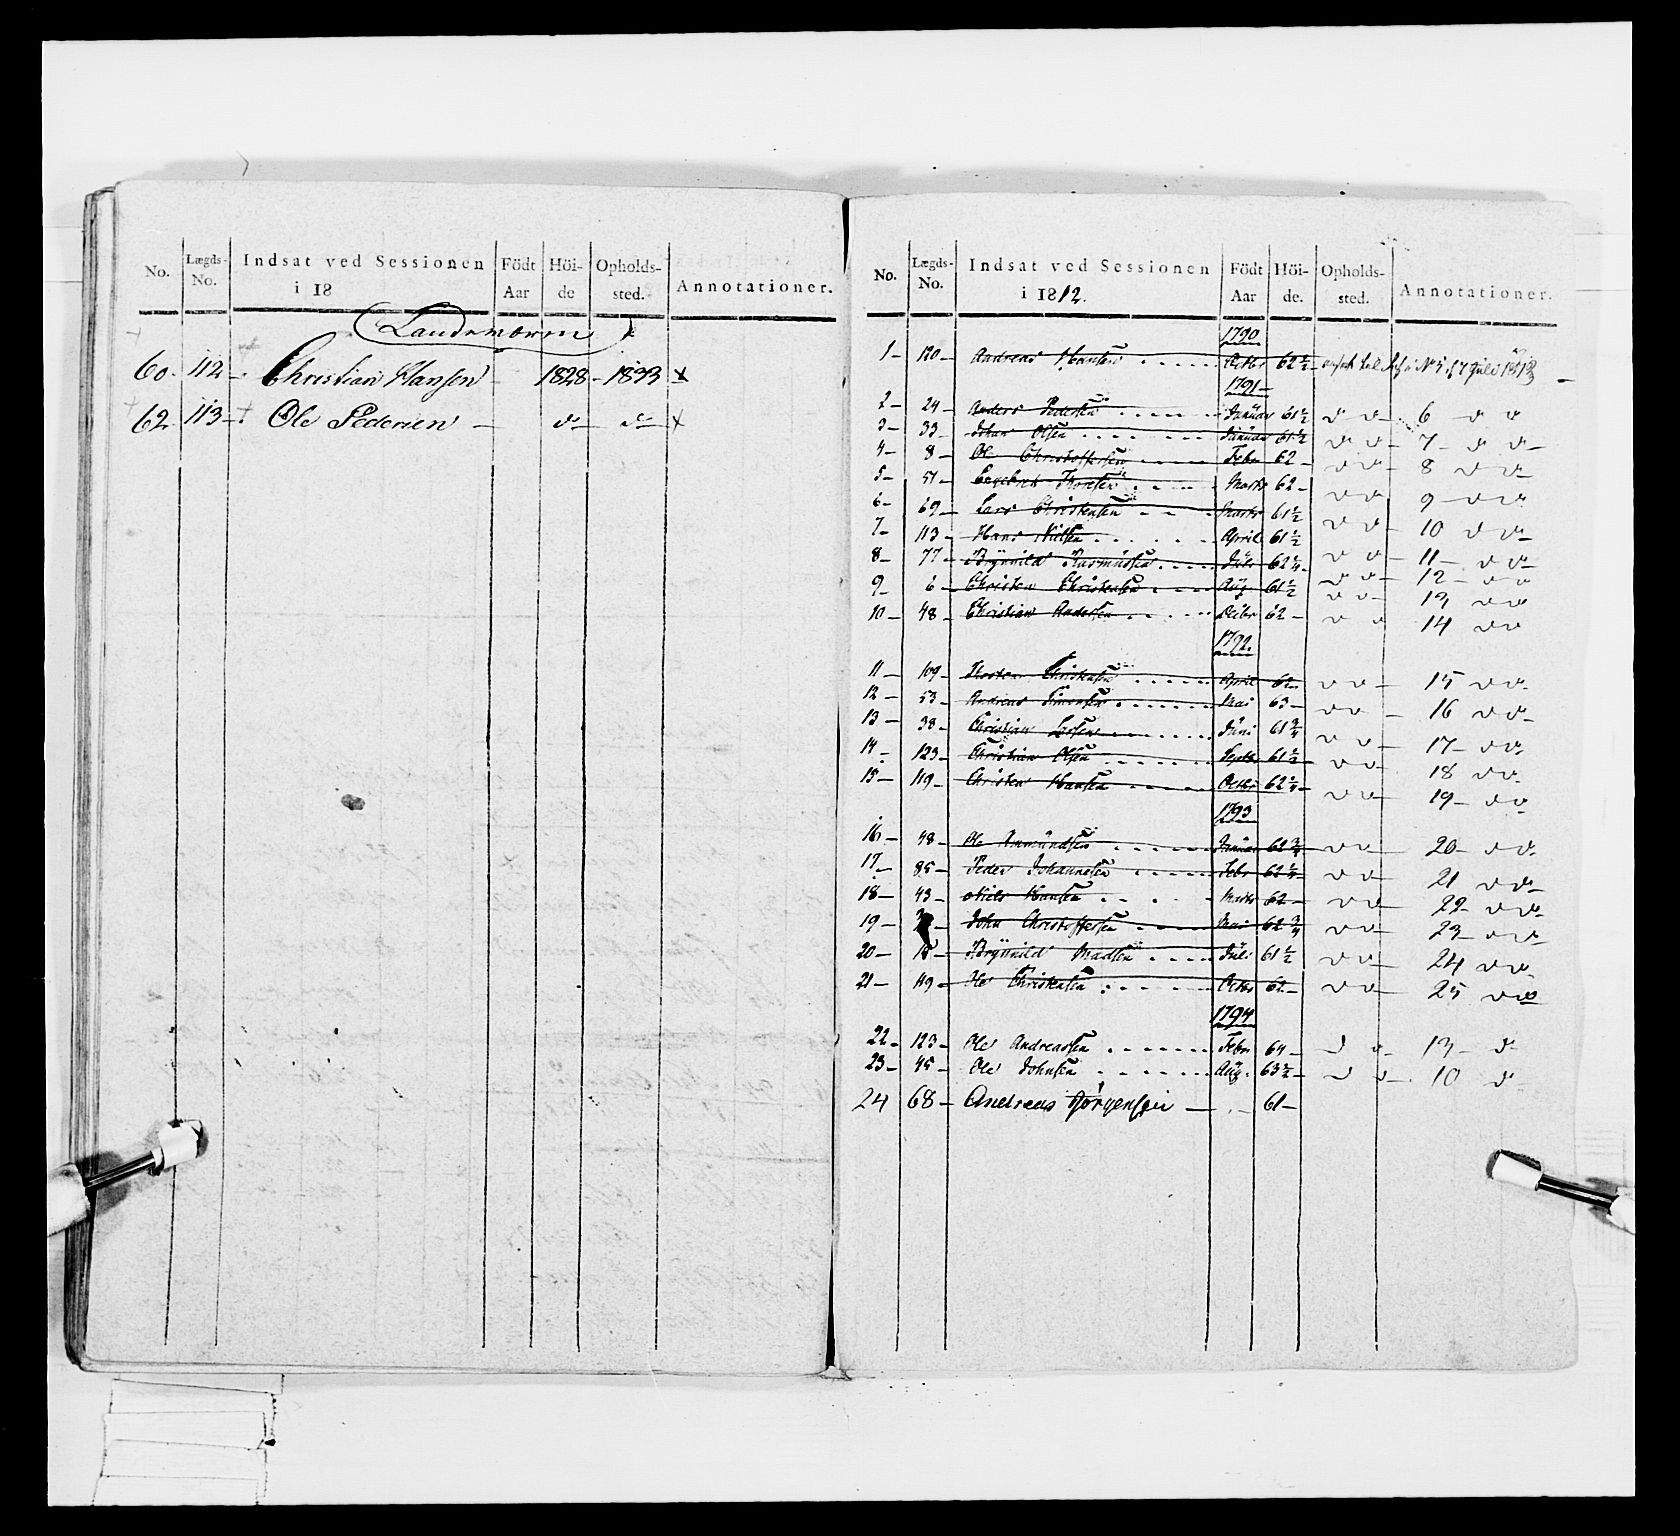 No. Lægds-No. Indsat ved Sessionen i 18 Födt Aar Höi-de Opholds-sted. Annotationer.
Landeværn
60. 112 Christian Hansen 1828 - 1833 x
62 113 Ole Pedersen do do x
No. Lægds-No. Indsat ved Sessionen i 1812. Födt Aar Höi-de. Opholds-sted. Annotationer.
1790
1 - 120 - Andreas Hansen Octbr 62½ No 5 7 Juli
1791 -
2 - 24 - Anders Pedersen Januar 61½ do do - 6 do do
3 - 33 - Johan Olsen Januar 61½ do do - 7 - do do -
4 - 8 - Ole Christoffersen Febr 62 - do do - 8 do do -
5 - 51 - Engebret Thoresen Marts 62 - do do 9 - do do
6 - 69 - Lars Christensen Marts 61½ do do - 10 do do -
7 - 113 - Hans Nielsen April 61½ do do - 11 - do do -
8 - 77 - Brynild Rasmussen Juli 62¼ do do - 12 - do do
9 - 6 - Christen Christensen Aug. 61½ do do - 13 do do
10 - 48 - Christian Andersen 62 - do do 14 do do
1792.
11 - 109 - Thosten Christensen April 62 - do do - 15 do do -
12 - 53 - Andreas Simonsen Mai 63 - do do - 16 do do -
13 - 38 - Christian Larsen Juni 61¾ do do - 17 - do do
14 - 123 - Christian Olsen Septbr 61½ do do - 18 do do -
15 - 119 - Christen Hansen Octbr 62¼ do do - 19 - do do
1793
16 - 48 - Ole Amundsen Januar 62¾ do do - 20 - do do -
17 - 85 - Peder Johannesen Febr 62¼ do do - 21 do do -
18 - 43 - Niels Hansen Marts 62 - do do - 22 - do do -
19 - John Christoffersen Mai 62¾ do do - 23 - do do -
20 - 18 - Brynild Madsen Juli 61½ do do - 24 do do -
21 - 119 - Ole Christensen Octbr 62 - do do - 25 do do
1794
22 - 123 - Ole Andreassen Febr 64 - do do - 13 - do
23 - 45 - Ole Johnsen Aug. 63½ - do do - 10 do
24 68 - Andreas Jörgensen - - 61 -